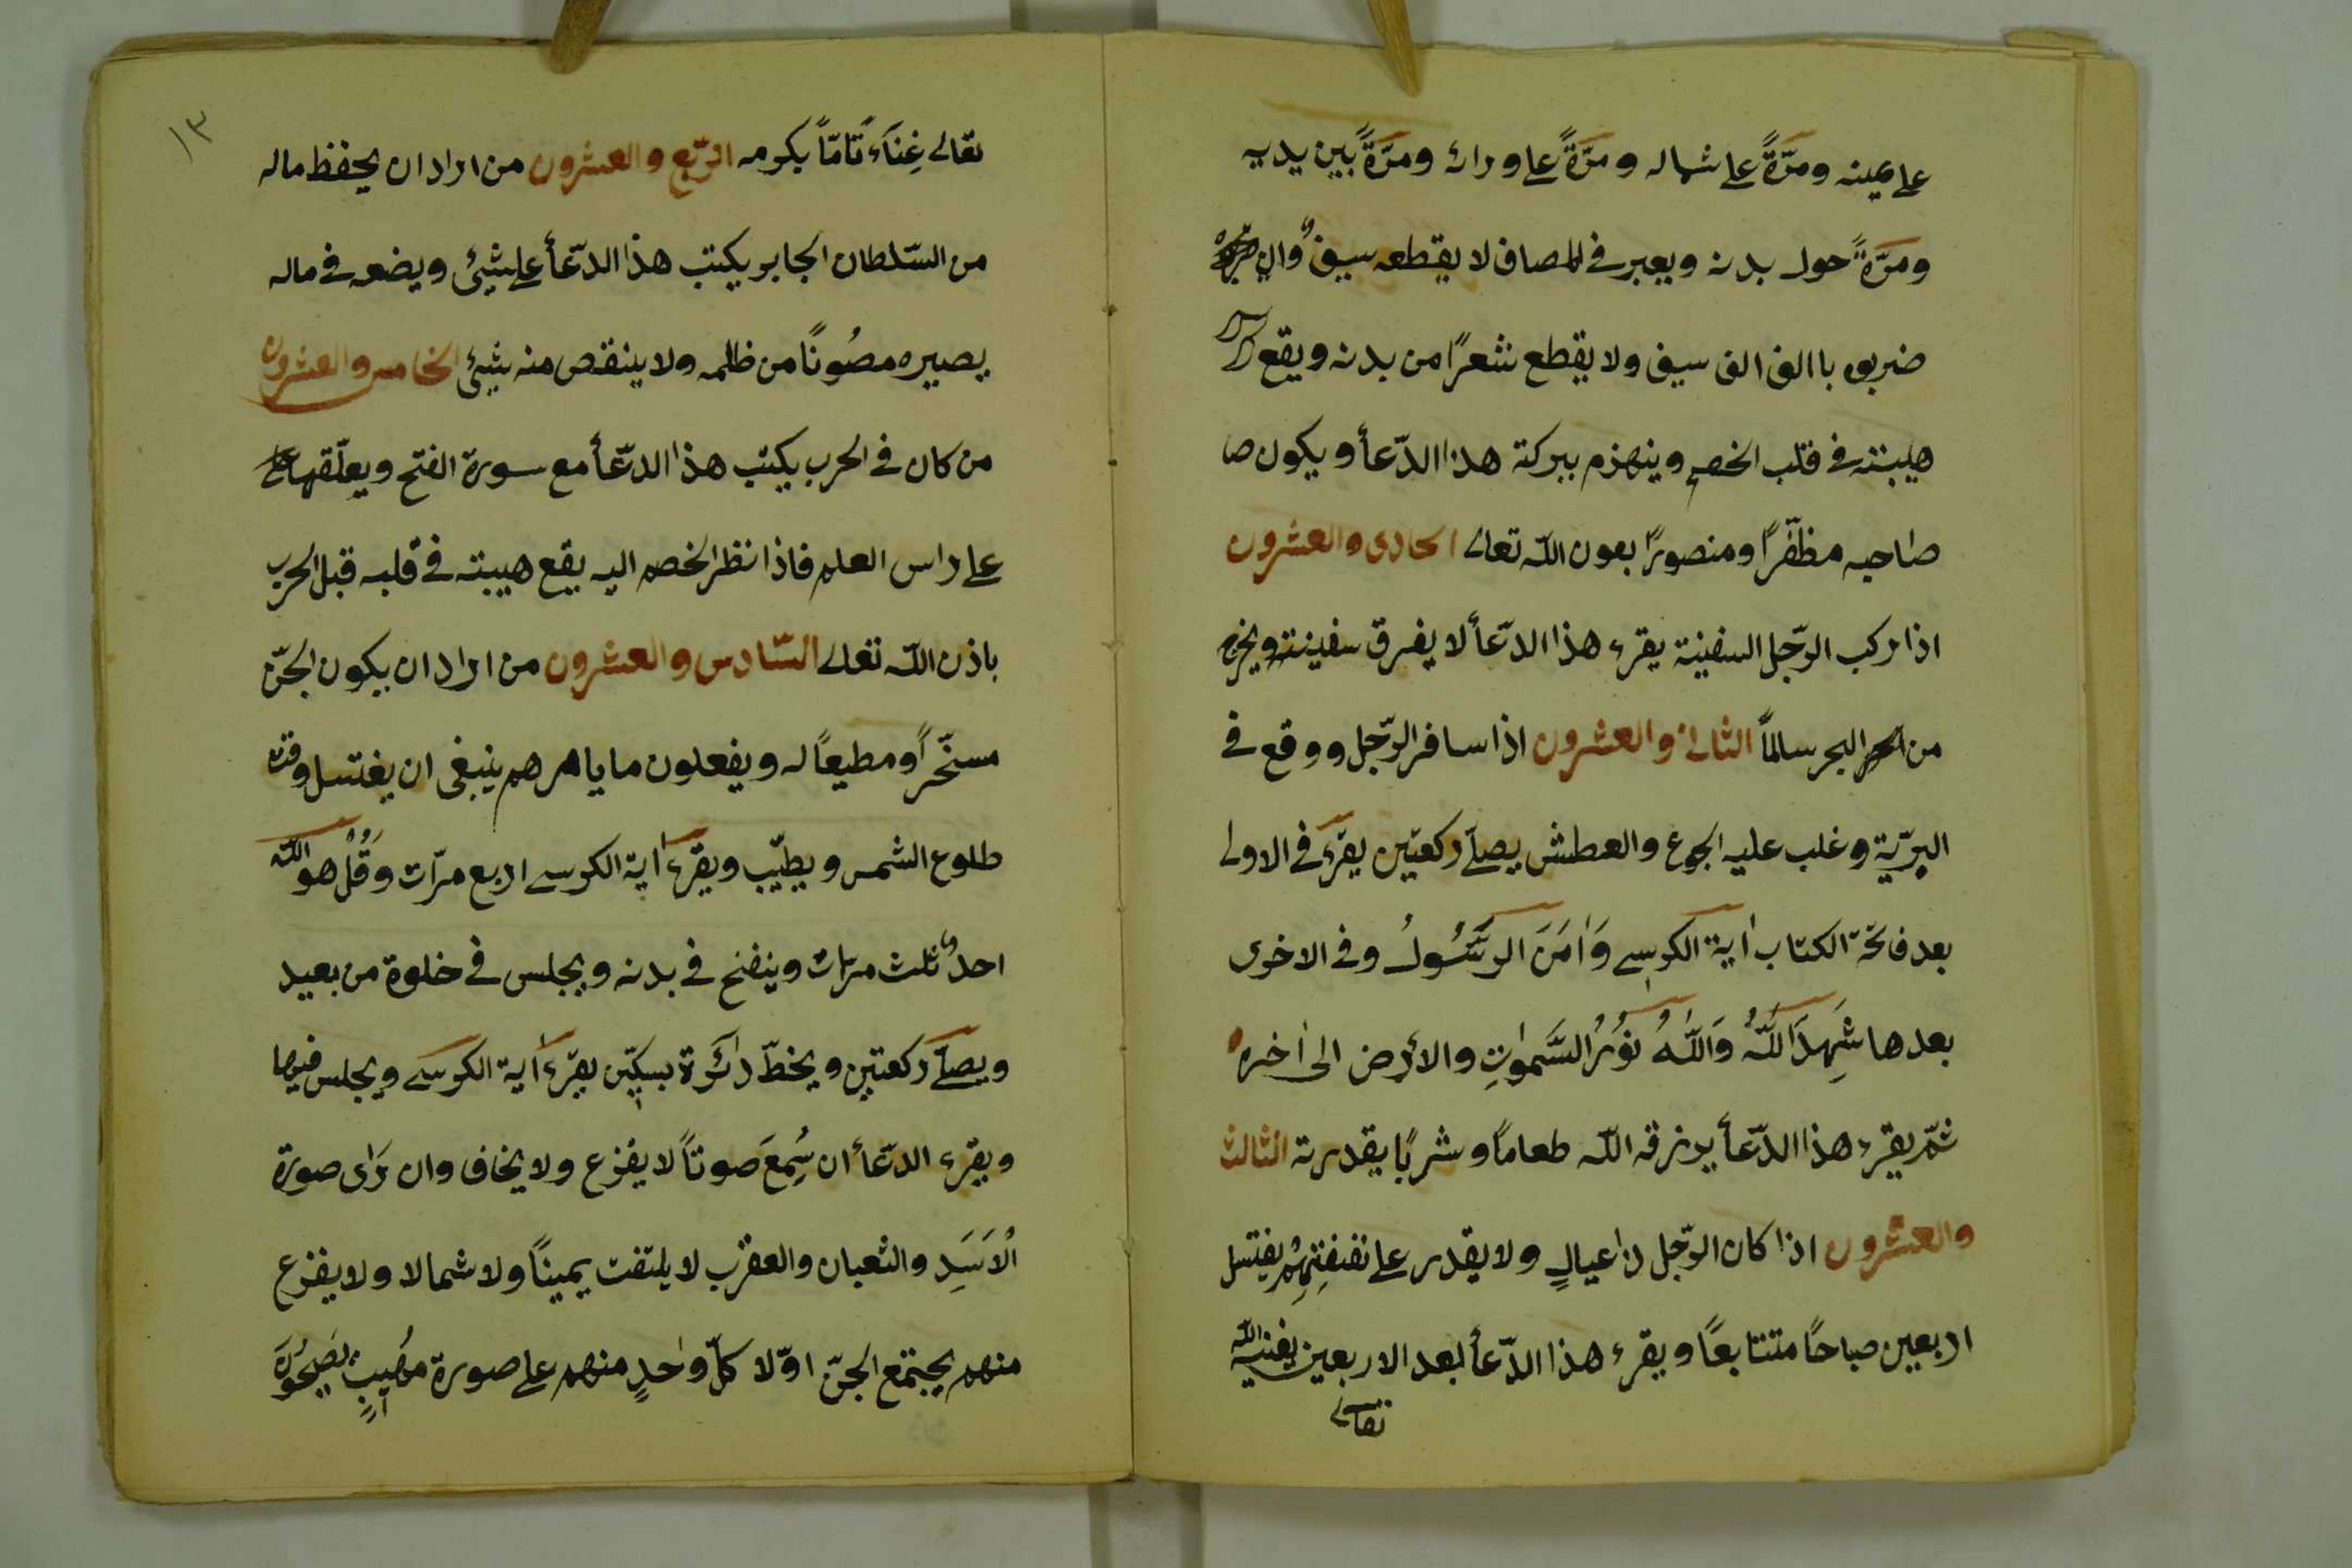 على يمينه ومرّةً على شماله ومرّةً على ورائه ومرّةً بين يديه
ومرّةً حول بدنه ويعبر فى المصاف لا يقطعه سيفٌ وان
ضربوه باالف الف سيف ولا يقطع شعرًا من بدنه ويقع
هيبته فى قلب الخصم وينهزم ببركة هذا الدّعأ ويكون صا
صاحبه مظفّرًا ومنصورًا بعون اللّه تعالى الحادى والعشرون
اذا ركب الرّجل السفينة يقرء هذا الدّعأ لا يغرق سفينته ويخرج
من البحر سالمًا الثانى والعشرون اذا سافر الرّجل ووقع فى
البرّية وغلب عليه الجوع والعطش يصلّى ركعتين يقرء فى الاولى
بعد فاتحة الكتاب اية الكرسى وَاٰمَنَ الرَّسُولُ وفى الاخرى
بعدها شَهِدَ اللّٰهُ وَاللّٰهُ نُورُ السَّمٰواتِ والاَرض الى اٰخره
ثمّ يقرء هذا الدّعأ يرزقه اللّه طعامًا وشربًا بقدرته الثالث
والعشرون اذا كان الرّجل ذا عيالٍ ولا يقدر على نفقتِهِمْ يغتسل
اربعين صباحًا متتابعًا ويقرء هذا الدّعأ بعد الاربعين يغنيه اللّه
تعالى
١٣
تعالى غِنَاءً تامّاً بكرمه الرّبع والعشرون من اراد ان يحفظ ماله
من السّلطان الجابر يكتب هذا الدّعأ على شيئ ويضعه فى ماله
يصيره مصُونًا من ظلمه ولا ينقص منه شيئ الخامس والعشرون
من كان فى الحرب يكتب هذا الدّعأ مع سورة الفتح ويعلّقها على
على راس العلم فاذا نظر الخصم اليه يقع هيبته فى قلبه قبل الحرب
باذن اللّه تعالى السّادس والعشرون من اراد ان يكون الجنّ
مسخّرًا ومطيعًا له ويفعلون ما يامرهم ينبغى ان يغتسل وقت
طلوع الشمس ويطيّب ويقرء اٰية الكرسى اربع مرّات وَقُلْ هو اللّه
احدٌ ثلث مرّات وينفخ فى بدنه ويجلس فى خلوة من بعيد
ويصلّى ركعتين ويخطّ دائرة بسكّين يقرء اٰية الكرسى ويجلس فيها
ويقرء الدّعأ ان سُمِعَ صوتاً لا يفزع ولا يخاف وان رَاى صورة
اْلاَسَدِ والثعبان والعقرب لا يلتفت يمينًا ولا شمالا ولا يفزع
منهم يجتمع الجنّ اوّلا كلّ واٰحدٍ منهم على صورة مهُيبٍ يَصيحُونَ